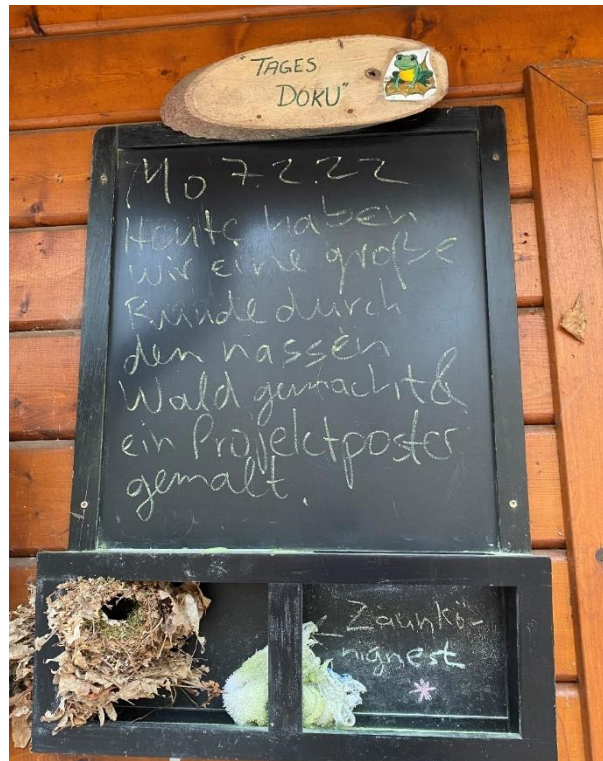 "TAGES
DOKU"
Mo 7.2.22
Heute haben
wir eine große
Runde durch
den nassen
Wald gemacht &
ein Projektposter
gemalt.
← Zaunkö-
nignest